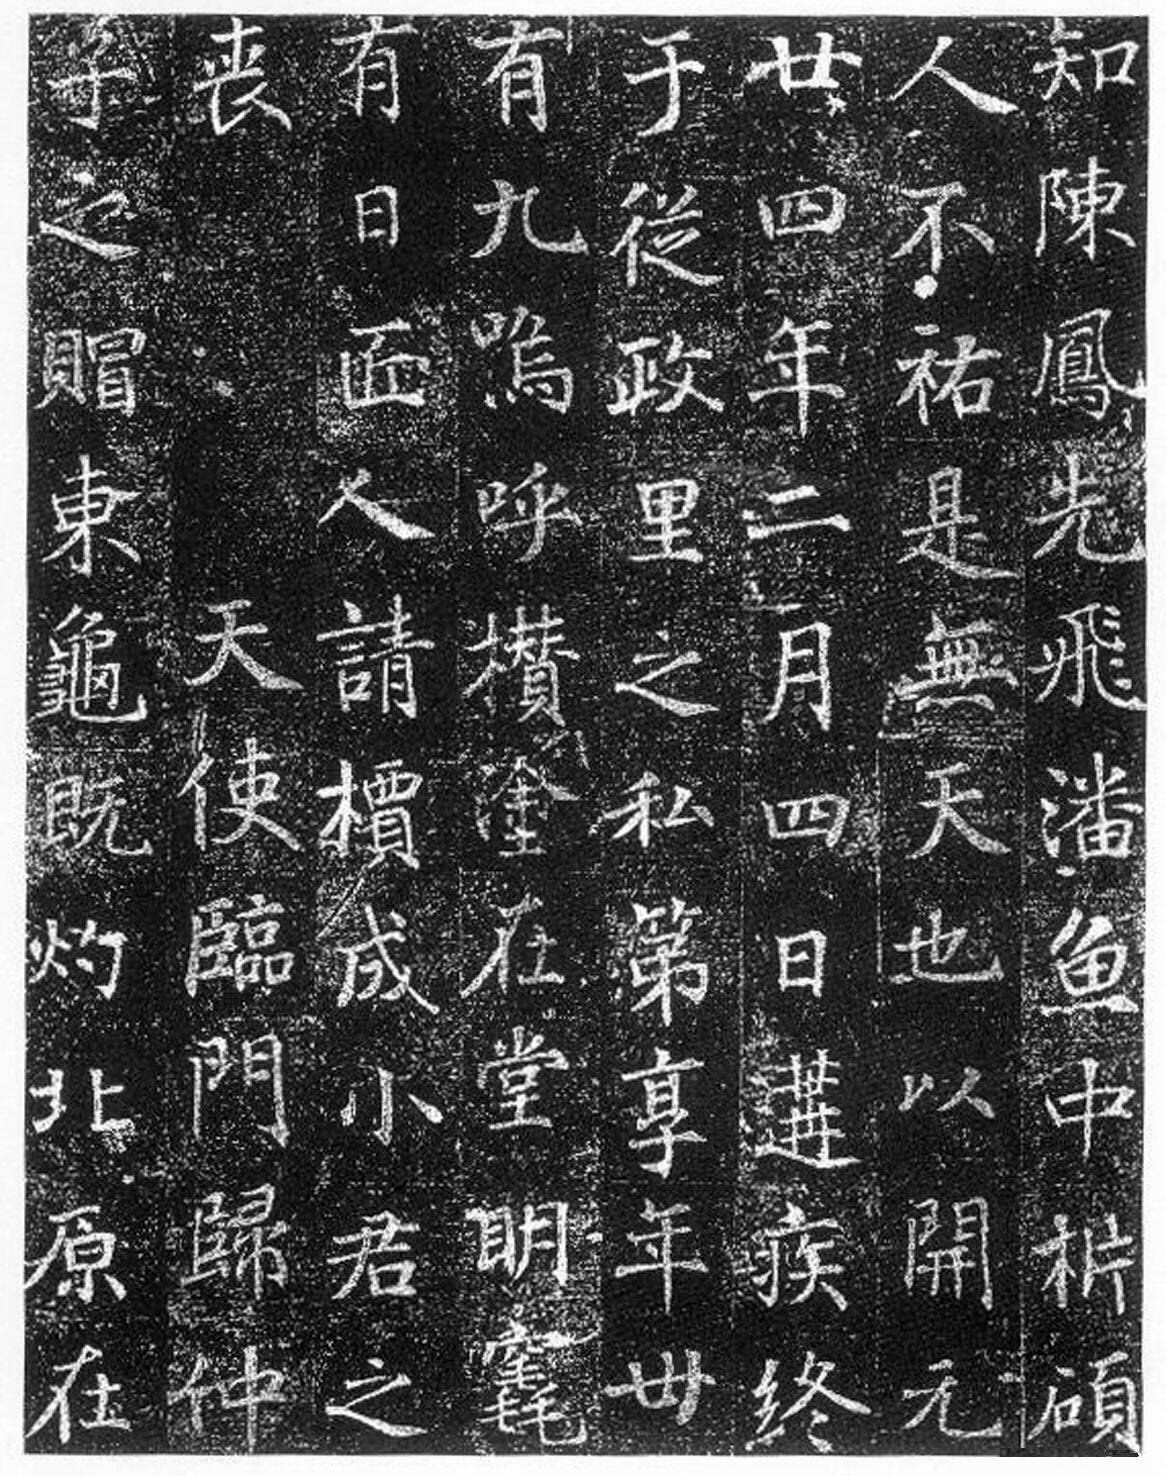 知陳鳳先飛潘魚中析碩
人不祐是無天也以開元
廿四年二月四日遘疾終
于從政里之私第享年卅
有九嗚呼攢塗在堂明
有日面人請櫝成小君之
喪天使臨門歸仲
子之賵東龜既灼北原在